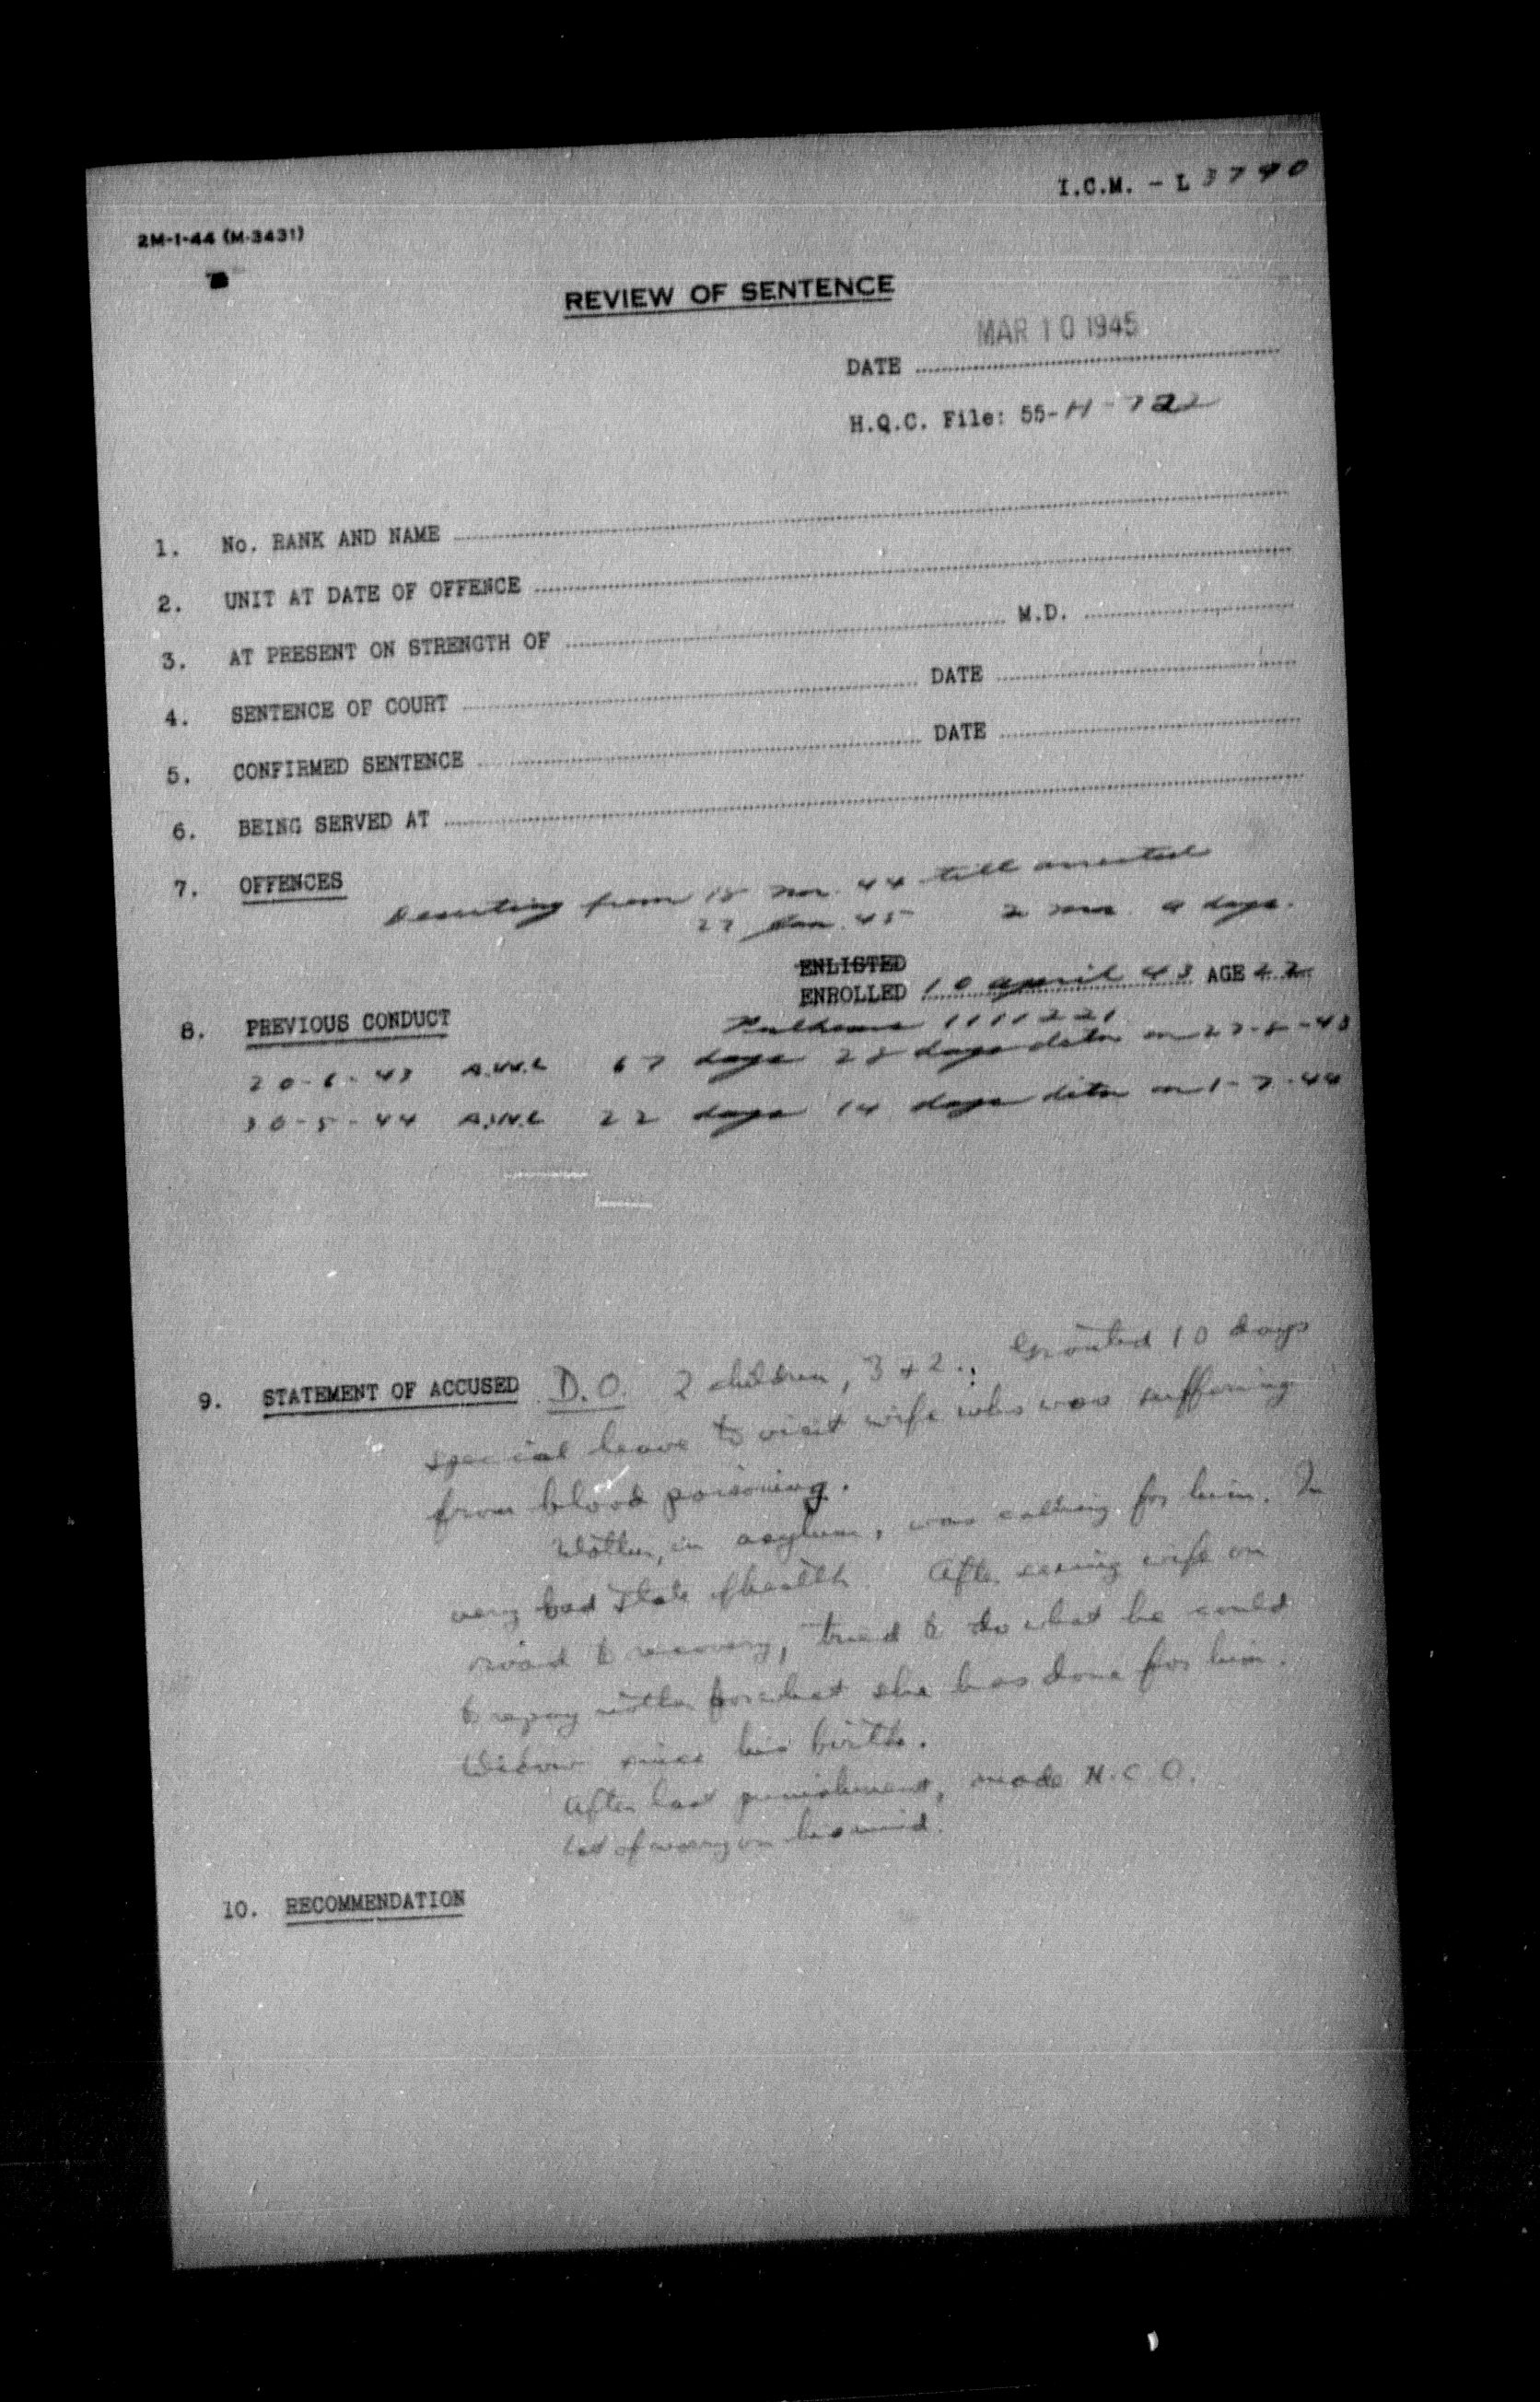 I.C.M. - L 3790
2M-1-44 (M-3431)
REVIEW OF SENTENCE
MAR 10 1945
DATE
H.Q.C. File: 55-H-722
1. No. RANK AND NAME
2. UNIT AT DATE OF OFFENCE
3. AT PRESENT ON STRENGTH OF M.D.
4. SENTENCE OF COURT DATE
5. CONFIRMED SENTENCE DATE
6. BEING SERVED AT
7. OFFENCES
Deserting from 18 Nov. 44 till arrested
27 Jan. 45 2 mos 9 days.
ENLISTED
ENROLLED 10 April 43 AGE 22
8. PREVIOUS CONDUCT
Pulhems 1111221
20-6-43 A.W.L 67 days 28 days detn on 27-8-43
30-5-44 A.W.L 22 days 14 days detn on 1-7-44
9. STATEMENT OF ACCUSED D.O. 2 children, 3 + 2. Granted 10 days
special leave to visit wife who was suffering
from blood poisoning.
Mother, in asylum, was calling for him. In
very bad state of health. After seeing wife on
road to recovery, tried to do what he could
to repay mother for what she has done for him.
Widow since his birth.
After last punishment, made N.C.O.
Lot of worry on his mind.
10. RECOMMENDATION